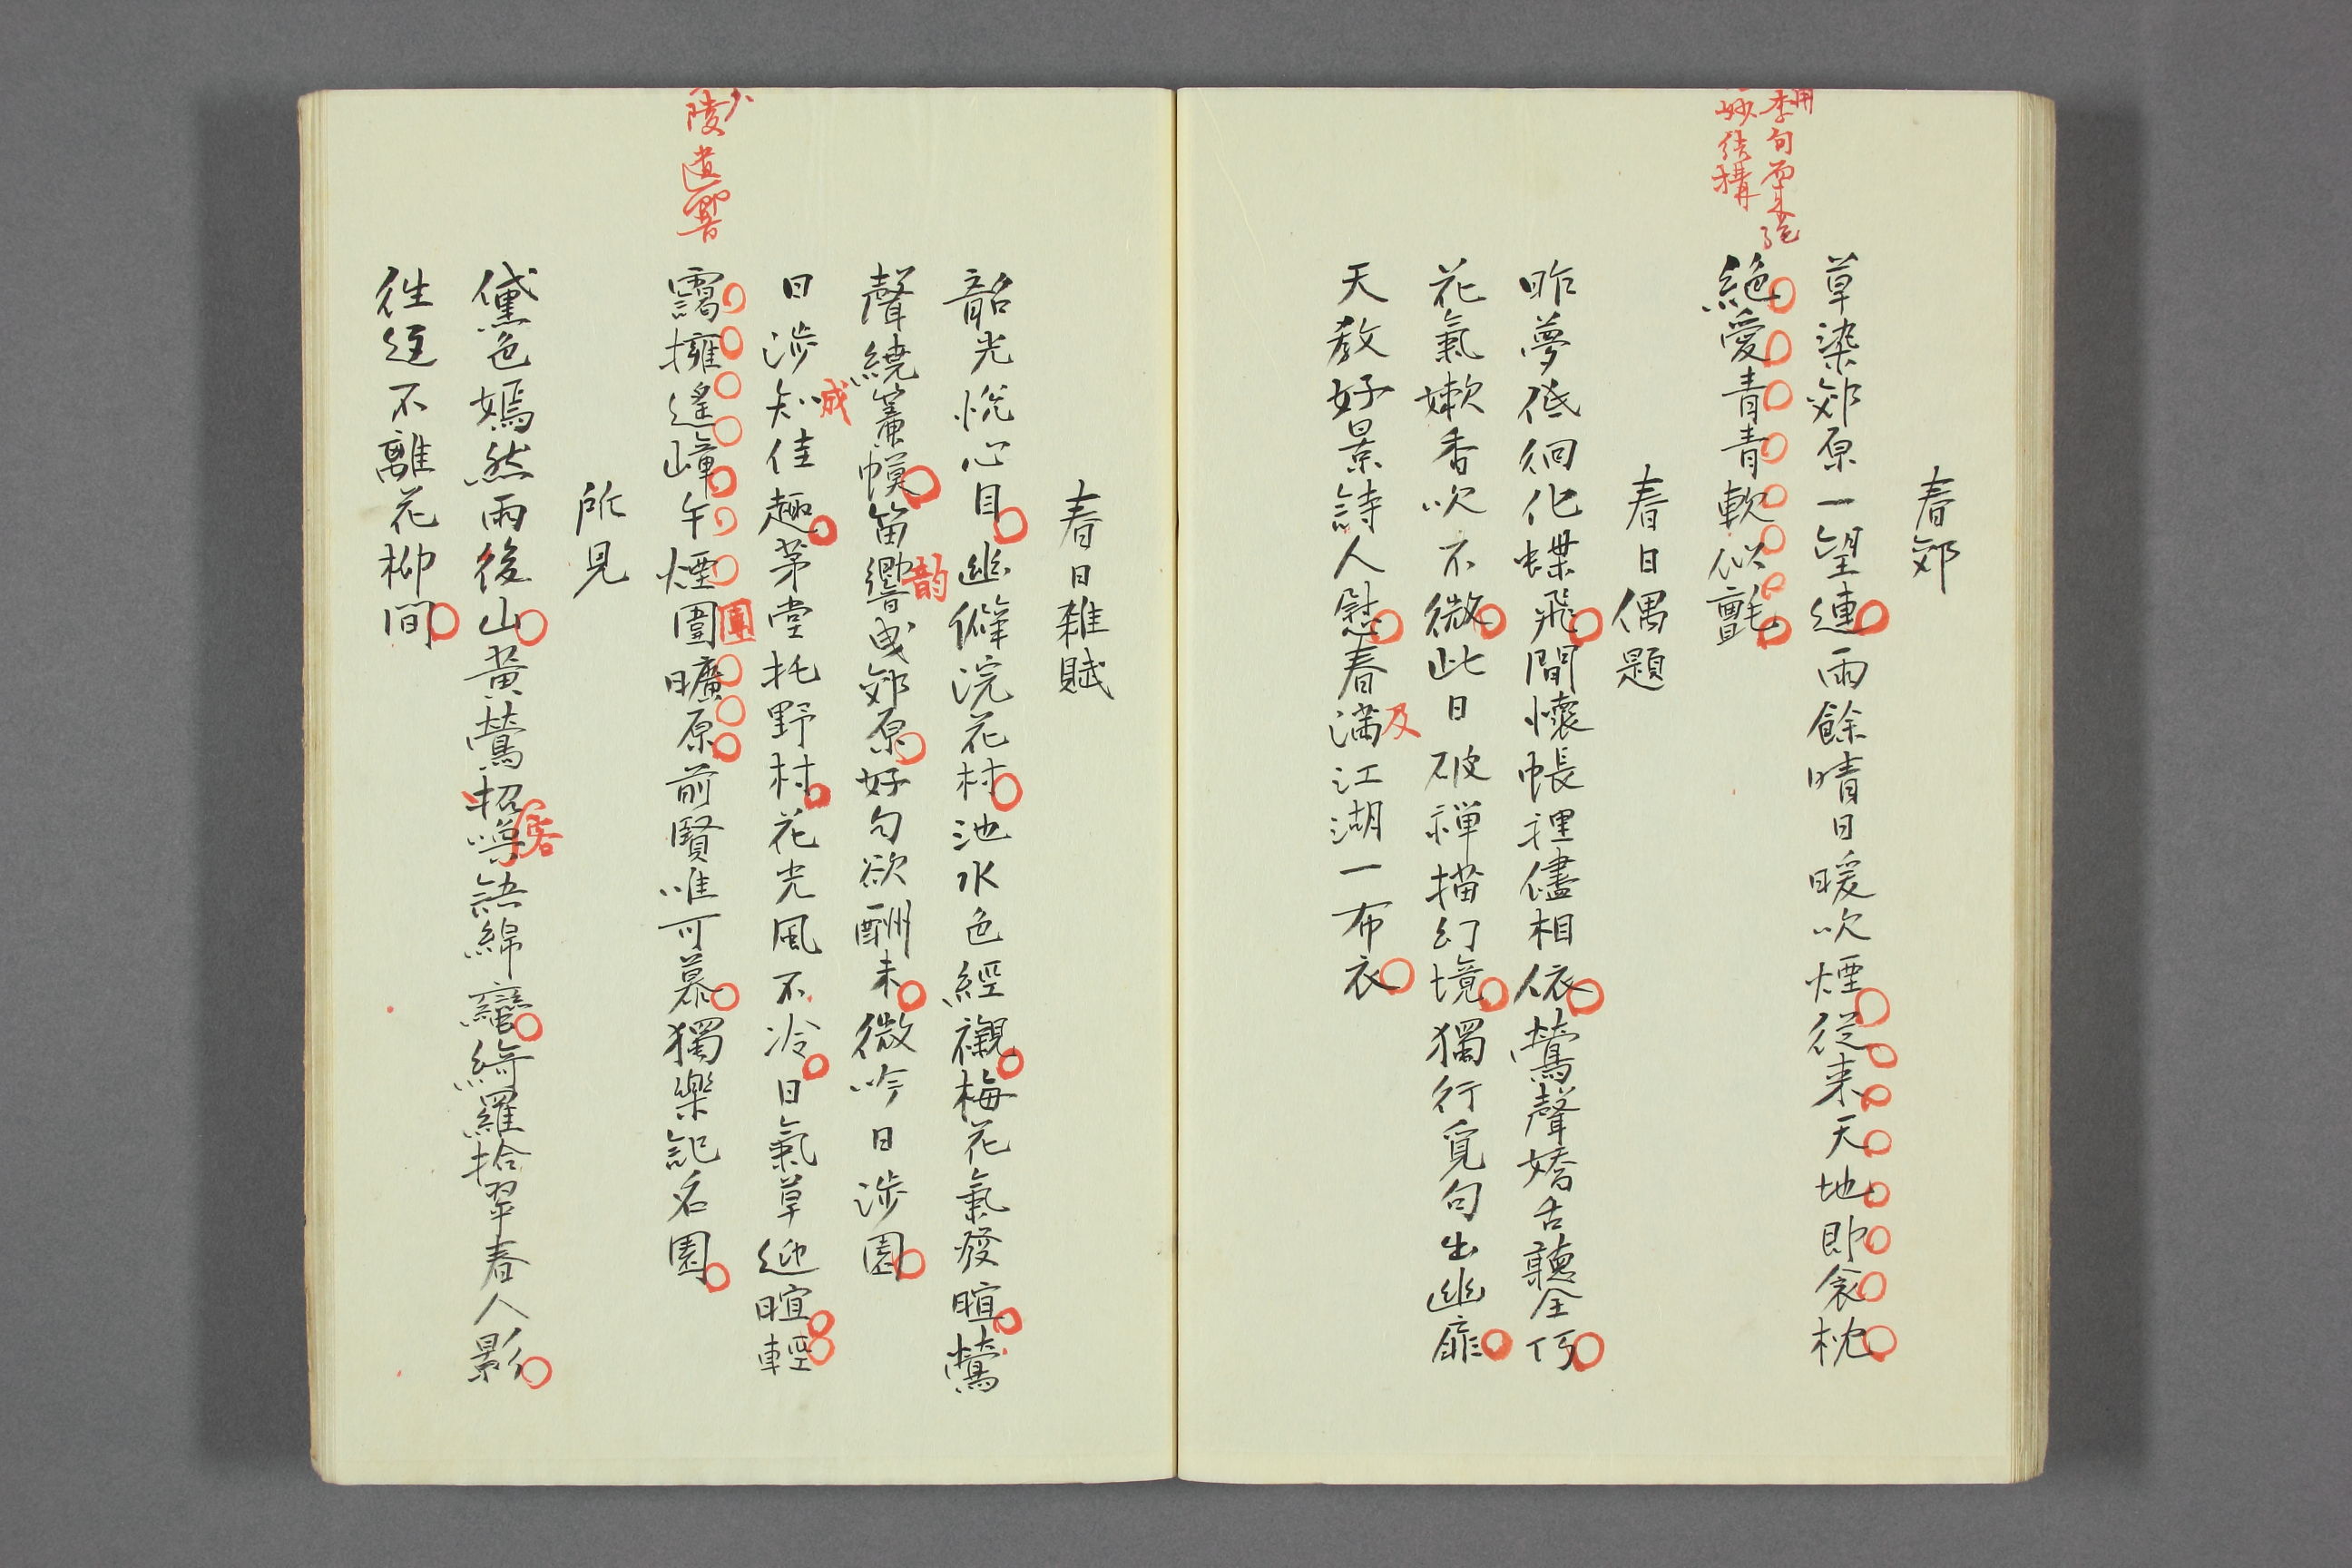 春郊
草染郊原一望連雨餘晴日暖吹煙從来天地即衾枕
絶愛青青軟似氈
用
李句而来絶
妙結構
春日偶題
昨夢低徊化蝶飛間懷帳裡儘相依鶯聲嬌舌聽全伃
花氣嫩香吹不微此日破禅描幻境獨行覓句出幽扉
天教好景詩人慰春満江湖一布衣
及
春日雜賦
韶光悅心目幽僻浣花村池水色經襯梅花氣發暄鶯
聲繞簾幙笛響曳郊原好句欲酬未微吟日涉園
韵
日涉知佳趣茅堂托野村花光風不冷日氣草迎暄輕
成
靄擁遙嶂午煙圍曠原前賢唯可慕獨樂記名園
團
少
陵遺響
所見
黛色嫣然雨後山黃鶯招喚語綿蠻綺羅拾翠春人影
客
往逕不離花柳間